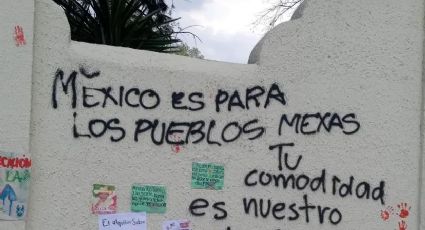 MÉXICO ES PARA
LOS PUEBLOS MEXAS
Tu
comodidad
es nuestro